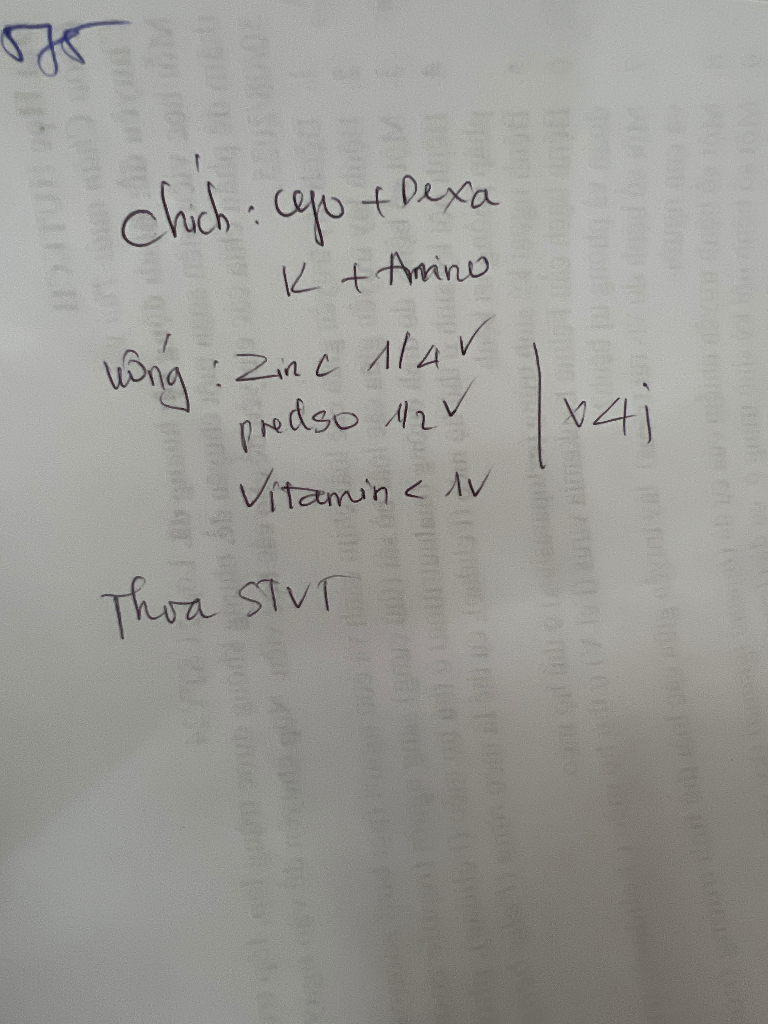 575
Chích: cepo + Dexa
K + Amino
Uống: Zin c 1/4 v
predso 1/2 v
Vitamin c 1v
x4j
Thoa STVT